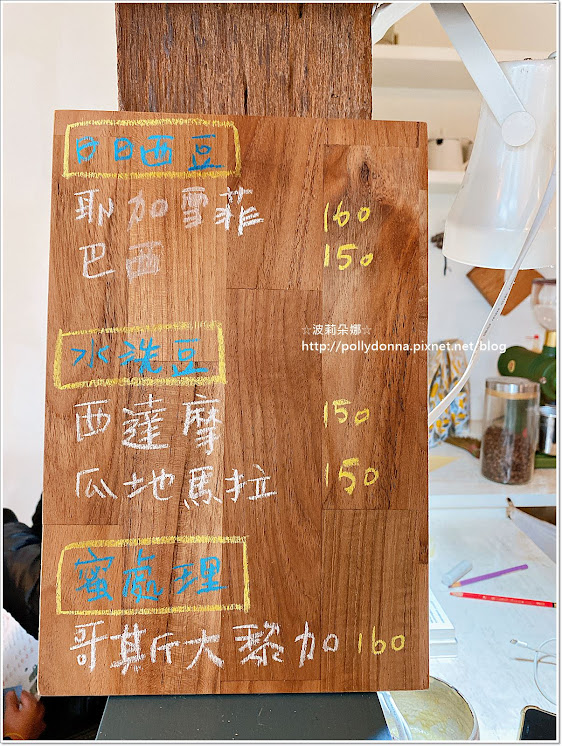 日日西豆
耶加雪菲 160
巴西 150
☆波莉朵娜☆
http://pollydonna.pixnet.net/blog
水洗豆
西達摩 150
瓜地馬拉 150
蜜處理
哥斯大黎加 160